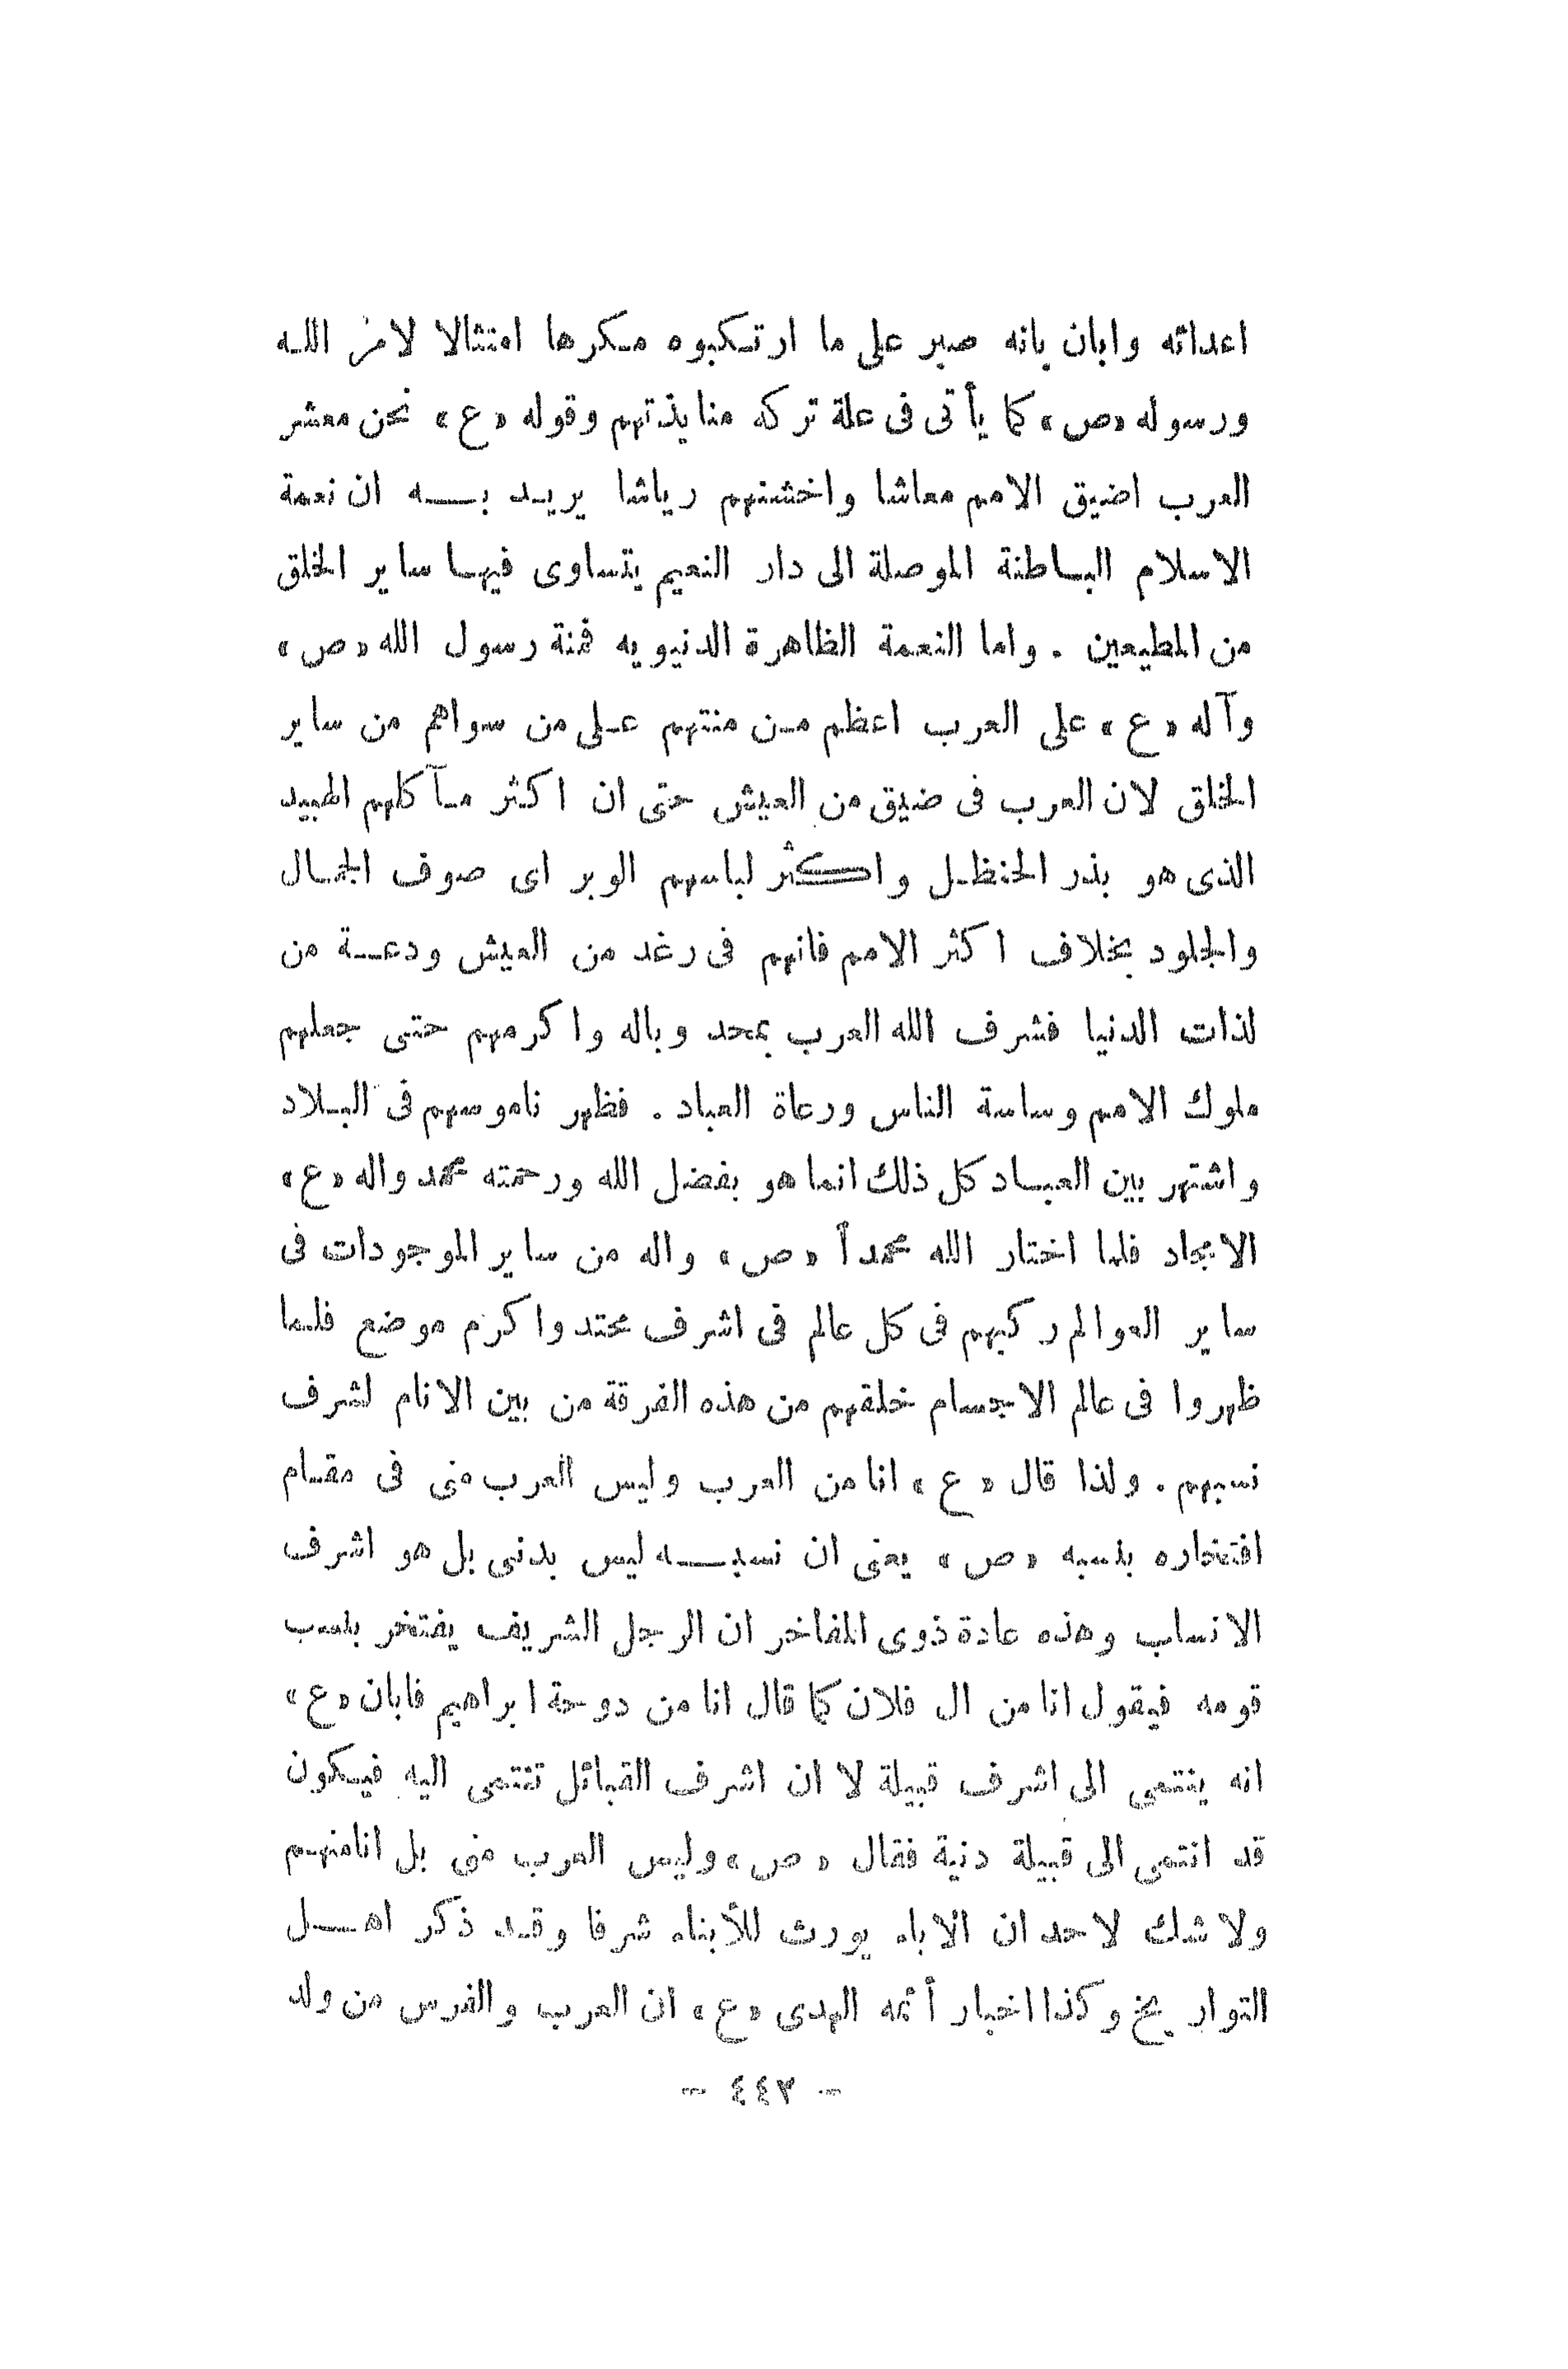 اعدائه وابان بانه صبر على ما ارتكبوه مكرها امتثالا لامر الله
ورسوله «ص» كما يأتى فى علة تركه منابذتهم وقوله «ع» نحن معشر
العرب اضيق الامم معاشا واخشنهم رياشا يريد به ان نعمة
الاسلام الباطنة الموصلة الى دار النعيم يتساوى فيها ساير الخلق
من المطيعين . واما النعمة الظاهرة الدنيويه فمنة رسول الله «ص»
وآله «ع» على العرب اعظم من منتهم على من سواهم من ساير
الخلق لان العرب فى ضيق من العيش حتى ان اكثر مآكلهم الهبيد
الذى هو بذر الحنظل واكثر لباسهم الوبر اى صوف الجمال
والجلود بخلاف اكثر الامم فانهم فى رغد من العيش ودعة من
لذات الدنيا فشرف الله العرب بمحد وباله واكرمهم حتى جعلهم
ملوك الامم وساسة الناس ورعاة العباد . فظهر ناموسهم فى البلاد
واشتهر بين العباد كل ذلك انما هو بفضل الله ورحمته محمد واله «ع»
الامجاد فلما اختار الله محمداً «ص» واله من ساير الموجودات فى
ساير العوالم ركبهم فى كل عالم فى اشرف محتد واكرم موضع فلما
ظهروا فى عالم الاجسام خلقهم من هذه الفرقة من بين الانام لشرف
نسبهم . ولذا قال «ع» انا من العرب وليس العرب منى فى مقام
افتخاره بنسبه «ص» يعنى ان نسبه ليس بدنى بل هو اشرف
الانساب وهذه عادة ذوى المفاخر ان الرجل الشريف يفتخر بنسب
قومه فيقول انا من ال فلان كما قال انا من دوحة ابراهيم فابان «ع»
انه ينتمى الى اشرف قبيلة لا ان اشرف القبائل تنتمى اليه فيكون
قد انتمى الى قبيلة دنية فقال «ص» وليس العرب منى بل انامنهم
ولا شك لاحد ان الاباء يورث للأبناء شرفا وقد ذكر اهل
التواريخ وكذا اخبار أئمه الهدى «ع» ان العرب والفرس من ولد
- ٤٤٣ -